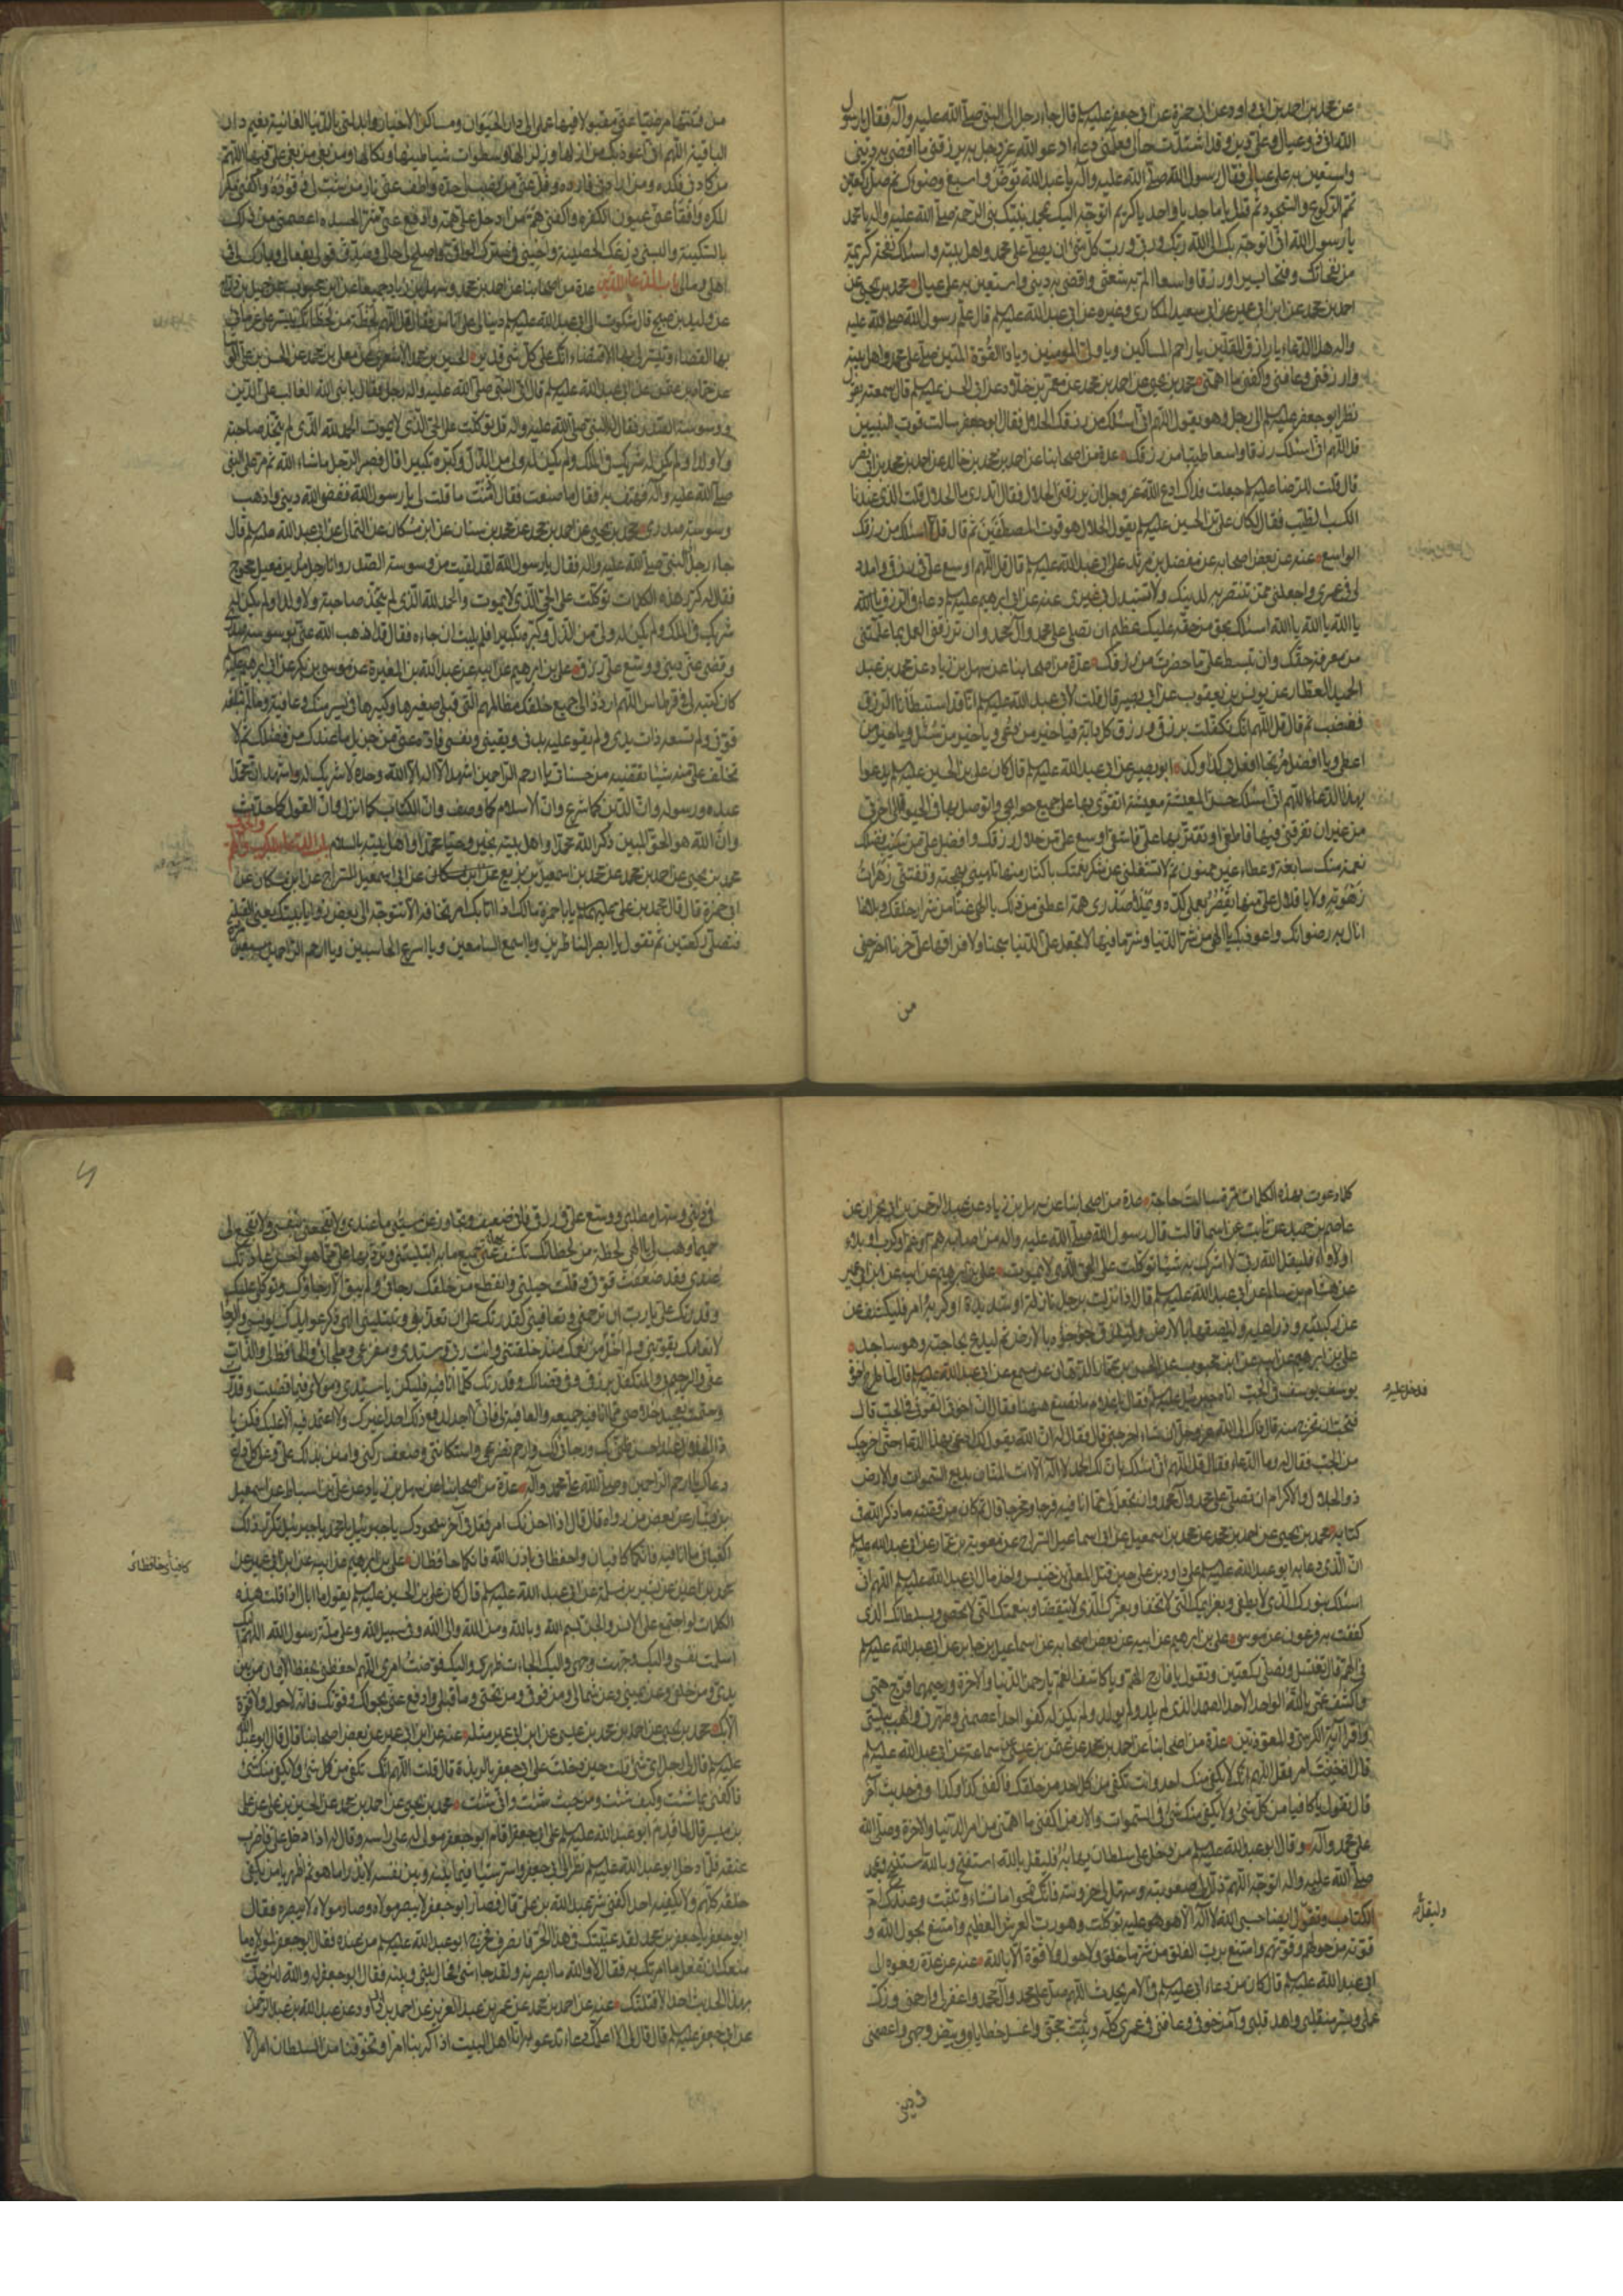 عن محمد بن احمد بن ابى داود عن ابى حمزة عن ابى جعفر عليه السلم قال جاء رجل الى النبى صلى الله عليه وآله فقال يا رسول
الله انى ذو عيال وعلىّ دين وقد اشتدّت حالى فعلّمنى دعاء ادعو الله عز وجل به يرزقنى ما اقضى به دينى
واستعين به على عيالى فقال رسول الله صلى الله عليه وآله يا عبد الله توضّأ واسبغ وضوءك ثم صلّ ركعتين
تتم الركوع والسجود ثم قل يا ماجد يا واحد يا كريم اتوجّه اليك بمحمد نبيّك نبى الرحمة صلى الله عليه واله يا محمد
يا رسول الله انى اتوجّه بك الى الله ربّك وربى ورب كل شئ ان يصلى على محمد واهل بيته واسئلك نفحة كريمة
من نفحاتك وفتحا يسيرا ورزقا واسعا الم به شعثى واقضى به دينى واستعين به على عيالى محمد بن يحيى عن
احمد بن محمد عن ابن ابى عمير عن ابى سعيد المكارى وغيره عن ابى عبد الله عليه السلم قال علّم رسول الله صلى الله عليه
واله هذا الدعاء يا رازق المقلّين يا راحم المساكين ويا ولى المومنين ويا ذا القوّة المتين صل على محمد واهل بيته
وارزقنى وعافنى واكفنى ما اهمّنى محمد بن يحيى عن احمد بن محمد عن معمّر بن خلاد عن ابى الحسن عليه السلم قال سمعته يقول
نظر ابو جعفر عليه السلم الى رجل وهو يقول اللهم انى اسئلك من رزقك الحلال فقال ابو جعفر سالت قوت النبيين
قل اللهم انى اسئلك رزقا واسعا طيبا من رزقك عدة من اصحابنا عن احمد بن محمد بن خالد عن احمد بن محمد بن ابى نصر
قال قلت للرضا عليه السلم جعلت فداك ادع الله عز وجل ان يرزقنى الحلال فقال تدرى ما الحلال قلت الذى عندنا
الكسب الطيّب فقال كان على بن الحسين عليه السلم يقول الحلال هو قوت المصطفَين ثم قال قل اسئلك من رزقك
الواسع عنه عن بعض اصحابه عن مفضل بن مزيد عن ابى عبد الله عليه السلم قال قل اللهم اوسع علىّ فى رزقى وامدد
لى فى عمرى واجعلنى ممن تنتصر به لدينك ولا تستبدل بى غيرى عنه عن ابى ابرهيم عليه السلم دعاء فى الرزق يا الله
يا الله يا الله اسئلك بحق من حقه عليك عظيم ان تصلى على محمد وآل محمد وان ترزقنى العمل بما علّمتنى
من معرفة حقّك وان تبسط علىّ ما حضرت من رزقك عدّة من اصحابنا عن سهل بن زياد عن محمد بن عبد
الحميد العطار عن يونس بن يعقوب عن ابى بصير قال قلت لابى عبد الله عليه السلم انا قد استبطأنا الرزق
فغضب ثم قال قل اللهم انك تكفّلت برزقى ورزق كل دابّة فيا خير من دعى ويا خير من سئل ويا خير من
اعطى ويا افضل مرتجا افعل بى كذا وكذا ابو بصير عن ابى عبد الله عليه السلم قال كان على بن الحسين عليه السلم يدعوا
بهذا الدعاء اللهم انى اسئلك حسن المعيشة معيشة اتقوّى بها على جميع حوايجى واتوصل بها فى الحيوة الى اخرتى
من غير ان تترفنى فيها فاطغى او تقتر بها علىّ فاشقى اوسع علىّ من حلال رزقك وافضل علىّ من سيب فضلك
نعمة منك سابغة وعطاء غير ممنون ثم لا تشغلنى عن شكر نعمتك باكثار منها تلهينى بهجته وتفتننى زهرات
زهوته ولا باقلال علىّ منها يقصر بعملى كدّه ويملأ صدرى همّه اعطنى من ذلك يا الهى غنا من شرار خلقك وبلاغا
انال به رضوانك واعوذ بك يا الهى من شر الدنيا وشر ما فيها لا تجعل علىّ الدنيا سجنا ولا فراقها علىّ حزنا اخرجنى
من
من فتنتها مرضيا عنى مقبولا فيها عملى الى دار الحيوان ومساكن الاخيار وابدلنى بالدنيا الفانية نعيم دار
الباقية اللهم انى اعوذ بك من ازلها وزلزالها وسطوات شياطينها ونكالها ومن بغى من بغى علىّ فيها اللهم
من كادنى فكده ومن ارادنى فارده وفلّ عنى من نصب لى حدّه واطف عنى نار من شبّ لى وقوده واكفنى مكر
المكره وافقأ عنى عيون الكفره واكفنى همّ من ادخل علىّ همّه وادفع عنى شر الحسده اعصمنى من ذلك
بالسكينة والبسنى درعك الحصينة واحينى فى سترك الواقى واصلح لى حالى وصدّق قولى بفعالى وبارك لى فى
اهلى ومالى باب الدعاء للدين عدة من اصحابنا عن احمد بن محمد وسهل بن زياد جميعا عن ابن محبوب عن جميل بن دراج
عن وليد بن صبيح قال شكوت الى ابى عبد الله عليه السلم دينا لى على اناس فقال قل اللهم لحظة من لحظاتك تيسر على غرمائى
بها القضاء وتيسر لى بها الاقتضاء انك على كل شئ قدير الحسين بن محمد الاشعرى عن معلى بن محمد عن الحسن بن على الوشاء
عن حماد بن عثمن عن ابى عبد الله عليه السلم قال اتى النبى صلى الله عليه واله رجل فقال يا نبى الله الغالب علىّ الدين
ووسوسة الصدر فقال له النبى صلى الله عليه واله قل توكّلت على الحى الذى لا يموت الحمد لله الذى لم يتخذ صاحبة
ولا ولدا ولم يكن له شريك فى الملك ولم يكن له ولى من الذل وكبّره تكبيرا قال فصبر الرجل ما شاء الله ثم مر على النبى
صلى الله عليه وآله فهتف به فقال ما صنعت فقال ادمنت ما قلت لى يا رسول الله فقضى الله دينى واذهب
وسوسة صدرى محمد بن يحيى عن احمد بن محمد عن محمد بن سنان عن ابن مسكان عن الثمالى عن ابى عبد الله عليه السلم قال
جاء رجل الى النبى صلى الله عليه واله فقال يا رسول الله لقد لقيت من وسوسة الصدر وانا رجل مدين معيل محوج
فقال له كرر هذه الكلمات توكلت على الحى الذى لا يموت والحمد لله الذى لم يتخذ صاحبة ولا ولدا ولم يكن له
شريك فى الملك ولم يكن له ولى من الذل وكبّره تكبيرا فلم يلبث ان جاءه فقال قد اذهب الله عنى وسوسة صدرى
وقضى عنى دينى ووسّع علىّ رزقى على بن ابرهيم عن ابيه عن عبد الله بن المغيرة عن موسى بن بكر عن ابى ابرهيم عليه السلم
كان كتبه لى فى قرطاس اللهم اردد الى جميع خلقك مظالمهم التى قبلى صغيرها وكبيرها فى يسر منك وعافية وما لم تبلغه
قوّتى ولم تسعه ذات يدى ولم يقو عليه بدنى ويقينى ونفسى فادّه عنى من جزيل ما عندك من فضلك ثم لا
تخلّف علىّ منه شيئا تقضيه من حسناتى يا ارحم الراحمين اشهد ان لا اله الا الله وحده لا شريك له واشهد ان محمدا
عبده ورسوله وان الدين كما شرع وان الاسلام كما وصف وان الكتاب كما انزل وان القول كما حدّث
وان الله هو الحق المبين ذكر الله محمدا واهل بيته بخير وحيّا محمدا واهل بيته بالسلام باب الدعاء للكرب والهم
محمد بن يحيى عن احمد بن محمد عن محمد بن اسمعيل بن بزيع عن ابى اسمعيل السراج عن ابن مسكان عن
ابى حمزة قال قال محمد بن على عليهما السلم يا با حمزة مالك اذا اتاك امر تخافه الا تتوجّه الى بعض زوايا بيتك يعنى القبلة
فتصلّى ركعتين ثم تقول يا ابصر الناظرين ويا اسمع السامعين ويا اسرع الحاسبين ويا ارحم الراحمين سبعين مرة
كلما دعوت بهذه الكلمات مرّة سالت حاجة عدة من اصحابنا عن سهل بن زياد عن عبد الرحمن بن ابى نجران عن
عاصم بن حميد عن ثابت عن اسما قالت قال رسول الله صلى الله عليه واله من اصابه هم او غم او كرب او بلاء
او لأواء فليقل الله ربى لا اشرك به شيئا توكلت على الحى الذى لا يموت على بن ابرهيم عن ابيه عن ابن ابى عمير
عن هشام بن سالم عن ابى عبد الله عليه السلم قال اذا نزلت برجل نازلة او شديدة او كربه امر فليكشف عن
عن ركبتيه وذراعيه وليلصقهما بالارض وليلزق جؤجؤه بالارض ثم ليدع بحاجته وهو ساجد
على بن ابرهيم عن ابيه عن ابن محبوب عن الحسن بن عمار الدهان عن مسمع عن ابى عبد الله عليه السلم قال لما طرح اخوة
يوسف يوسف فى الجب اتاه جبرئيل عليه السلم فقال يا غلام ما تصنع ههنا فقال ان اخوتى القونى فى الجب قال
فتحب ان تخرج منه قال ذاك الى الله عز وجل ان شاء اخرجنى قال فقال له ان الله يقول لك ادعنى بهذا الدعاء حتى اخرجك
من الجب فقال له وما الدعاء فقال قل اللهم انى اسئلك بان لك الحمد لا اله الا انت المنان بديع السموات والارض
ذو الجلال والاكرام ان تصلى على محمد وآل محمد وان تجعل لى مما انا فيه فرجا ومخرجا قال ثم كان من قصته ما ذكر الله فى
كتابه محمد بن يحيى عن احمد بن محمد عن محمد بن اسمعيل عن ابى اسماعيل السراج عن معوية بن عمار عن ابى عبد الله عليه السلم
ان الذى دعا به ابو عبد الله عليه السلم على داود بن على حين قتل المعلى بن خنيس واخذ مال ابى عبد الله عليه السلم اللهم انى
اسئلك بنورك الذى لا يطفى وبعزائمك التى لا تخفا وبعزّك الذى لا ينقضى وبنعمتك التى لا تحصى وبسلطانك الذى
كففت به فرعون عن موسى على بن ابرهيم عن ابيه عن بعض اصحابه عن اسماعيل بن جابر عن ابى عبد الله عليه السلم
فى الهم قال تغتسل وتصلى ركعتين وتقول يا فارج الهم ويا كاشف الغم يا رحمن الدنيا والاخرة ورحيمهما فرّج همى
واكشف غمى يا الله الواحد الاحد الصمد الذى لم يلد ولم يولد ولم يكن له كفوا احد اعصمنى وطهّرنى واذهب ببليتى
واقرأ آية الكرسى والمعوذتين عدة من اصحابنا عن احمد بن محمد عن عثمن بن عيسى عن سماعة عن ابى عبد الله عليه السلم
قال اذا خفت امرا فقل اللهم انك لا يكفى منك احد وانت تكفى من كل احد من خلقك فاكفنى كذا وكذا وفى حديث آخر
قال تقول يا كافيا من كل شئ ولا يكفى منك شئ فى السموات والارض اكفنى ما اهمنى من امر الدنيا والاخرة وصلى الله
على محمد وآله وقال ابو عبد الله عليه السلم من دخل على سلطان يهابه فليقل بالله استفتح وبالله استنجح وبمحمد
صلى الله عليه واله اتوجّه اللهم ذلّل لى صعوبته وسهّل لى حزونته فانك تمحوا ما تشاء وتثبت وعندك ام
الكتاب وتقول ايضا حسبى الله لا اله الا هو عليه توكلت وهو رب العرش العظيم وامتنع بحول الله و
قوته من حولهم وقوتهم وامتنع برب الفلق من شر ما خلق ولا حول ولا قوة الا بالله عنه عن عدة رفعوه الى
ابى عبد الله عليه السلم قال كان من دعاء ابى عليه السلم فى الامر يحدث اللهم صل على محمد وآل محمد واغفر لى وارحمنى وزكّ
عملى ويسر منقلبى واهد قلبى وآمن خوفى وعافنى فى عمرى كله وثبّت حجتى واغسل خطاياى وبيّض وجهى واعصمنى
فى دينى
قد دخل عليه
وليقل
فى دينى وسهل مطلبى ووسّع علىّ فى رزقى فانى ضعيف وتجاوز عن سيّئ ما عندى ولا تفجعنى بنفسى ولا تفجع لى
حميما وهب لى يا الهى لحظة من لحظاتك تكشف عنى جميع ما به ابتليتنى وترد بها علىّ ما هو احسن عاداتك
عندى فقد ضعفت قوتى وقلّت حيلتى وانقطع من خلقك رجائى ولم يبق الا رجاؤك وتوكلى عليك
وقدرتك علىّ يا رب ان ترحمنى وتعافينى كقدرتك علىّ ان تعذبنى وتبتلينى الهى ذكر عوايدك يونسنى والرجا
لانعامك يقوينى ولم اخل من نعمك منذ خلقتنى وانت ربى وسيدى ومفزعى وملجائى والحافظ لى والذاب
عنى والرحيم بى والمتكفل برزقى وفى قضائك وقدرتك كلّ ما انا فيه فليكن يا سيدى ومولاى فيما قضيت وقدّرت
وحتمت تعجيل خلاصى مما انا فيه جميعه والعافية لى فانى لا اجد لدفع ذلك احدا غيرك ولا اعتمد فيه الا عليك فكن يا
ذا الجلال عند احسن ظنى بك ورجائى لك وارحم تضرعى واستكانتى وضعف ركنى وامنن بذلك علىّ وعلى كل داع
دعاك يا ارحم الراحمين وصلى الله على محمد وآله عدّة من اصحابنا عن سهل بن زياد عن على بن اسباط عن اسمعيل
بن يسار عن بعض من رواه قال قال اذا احزنك امر فقل فى آخر سجودك يا جبرئيل يا محمد يا جبرئيل يا محمد تكرر ذلك
اكفيانى ما انا فيه فانكما كافيان واحفظانى باذن الله فانكما حافظان على بن ابرهيم عن ابيه عن ابن ابى عمير عن
محمد بن اعين عن بشير بن مسلمة عن ابى عبد الله عليه السلم قال كان على بن الحسين عليه السلم يقول ما ابالى اذا قلت هذه
الكلمات لو اجتمع علىّ الانس والجن بسم الله وبالله ومن الله والى الله وفى سبيل الله وعلى ملة رسول الله اللهم اليك
اسلمت نفسى واليك وجهت وجهى واليك الجأت ظهرى واليك فوضت امرى اللهم احفظنى بحفظ الايمان من بين
يدىّ ومن خلفى وعن يمينى وعن شمالى ومن فوقى ومن تحتى وما قبلى وادفع عنى بحولك وقوتك فانه لا حول ولا قوة
الا بك محمد بن يحيى عن احمد بن محمد بن عيسى عن ابن ابى عمير مثله عنه عن ابن ابى عمير عن بعض اصحابنا قال قال ابو عبد الله
عليه السلم قال لى رجل اىّ شئ قلت حين دخلت على ابى جعفر بالربذة قال قلت اللهم انك تكفى من كل شئ ولا يكفى منك شئ
فاكفنى بما شئت وكيف شئت ومن حيث شئت وانى شئت محمد بن يحيى عن احمد بن محمد عن الحسين بن على عن على
بن ميسر قال لما قدم ابو عبد الله عليه السلم على ابى جعفر اقام ابو جعفر مولى له على راسه وقال له اذا دخل علىّ فاضرب
عنقه فلما ادخل ابو عبد الله عليه السلم نظر الى ابى جعفر واسرّ شيئا فيما بينه وبين نفسه لا يدرا ما هو ثم اظهر يا من يكفى
خلقه كلهم ولا يكفيه احد اكفنى شر عبد الله بن على قال فصار ابو جعفر لا يبصر مولاه وصار مولاه لا يبصره فقال
ابو جعفر يا جعفر بن محمد لقد عيّيتك فى هذا الحر فانصرف فخرج ابو عبد الله عليه السلم من عنده فقال ابو جعفر لمولاه ما
منعك ان تفعل ما امرتك به فقال لا والله ما ابصرته ولقد جاء شئ فحال بينى وبينه فقال ابو جعفر له والله لئن حدثت
بهذا الحديث احدا لاقتلنك عنه عن احمد بن محمد عن عمر بن عبد العزيز عن احمد بن ابى داود عن عبد الله بن عبد الرحمن
عن ابى جعفر عليه السلم قال قال لى الا اعلّمك دعاء تدعو به انا اهل البيت اذا كربنا امر وتخوفنا من السلطان امرا لا
كافيان وحافظان